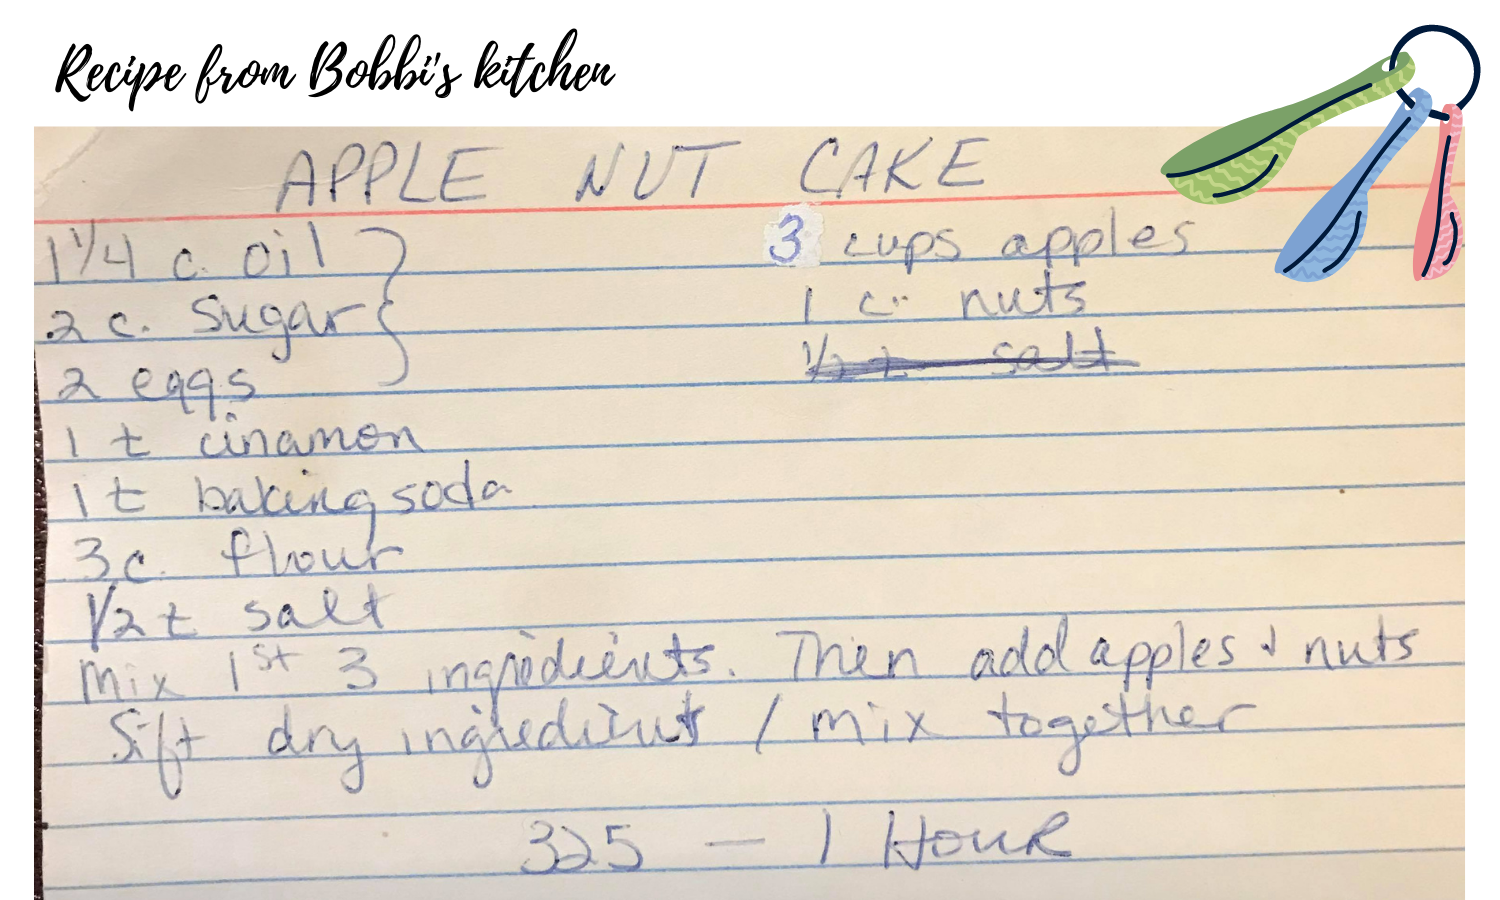 Recipe from Bobbi's kitchen
APPLE NUT CAKE
1 1/4 c. oil
2 c. sugar
2 eggs
1 t cinamon
1 t baking soda
3 c. flour
1/2 t salt
3 cups apples
1 c. nuts
1/2 t salt
Mix 1st 3 ingredients. Then add apples & nuts
Sift dry ingredients / mix together
325 — 1 HOUR